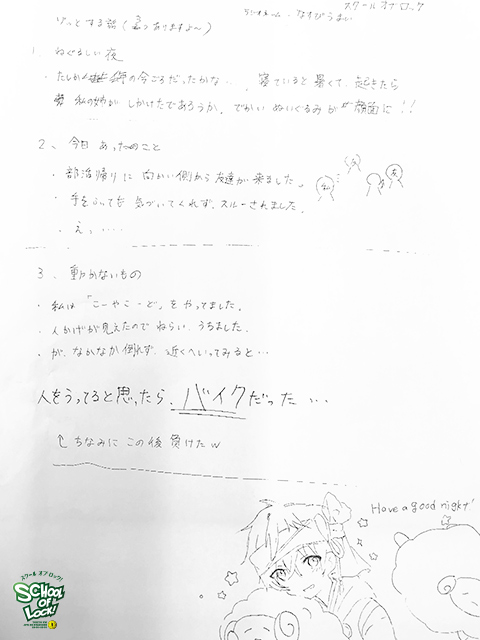 スクール オブ ロック
ラジオネーム . なすびうまい
ゾッとする話 ( 3つ ありますよ〜 )
1 ねぐるしい 夜
・ たしか の今ごろだったかな . . 寝ていると 暑くて . 起きたら
私の姉が しかけたであろうか . でかい ぬいぐるみが 顔面に !!
2 、 今日 あったのこと
・ 部活帰りに 向かい側から 友達が 来ました 。
・ 手をふっても 気づいてくれず . スルーされました .
・ え 、 ‥‥
3 、 動かないもの
・ 私は 「こーやこーど」 を やってました .
・ 人かげが見えたので ねらい . うちました .
・ が 、 なかなか 倒れず . 近くへいってみると …
人をうってると思ったら . バイクだった …
↑ ちなみに この後 負けた w
Have a good night!
スクール オブ ロック!
SCHOOL OF LOCK!